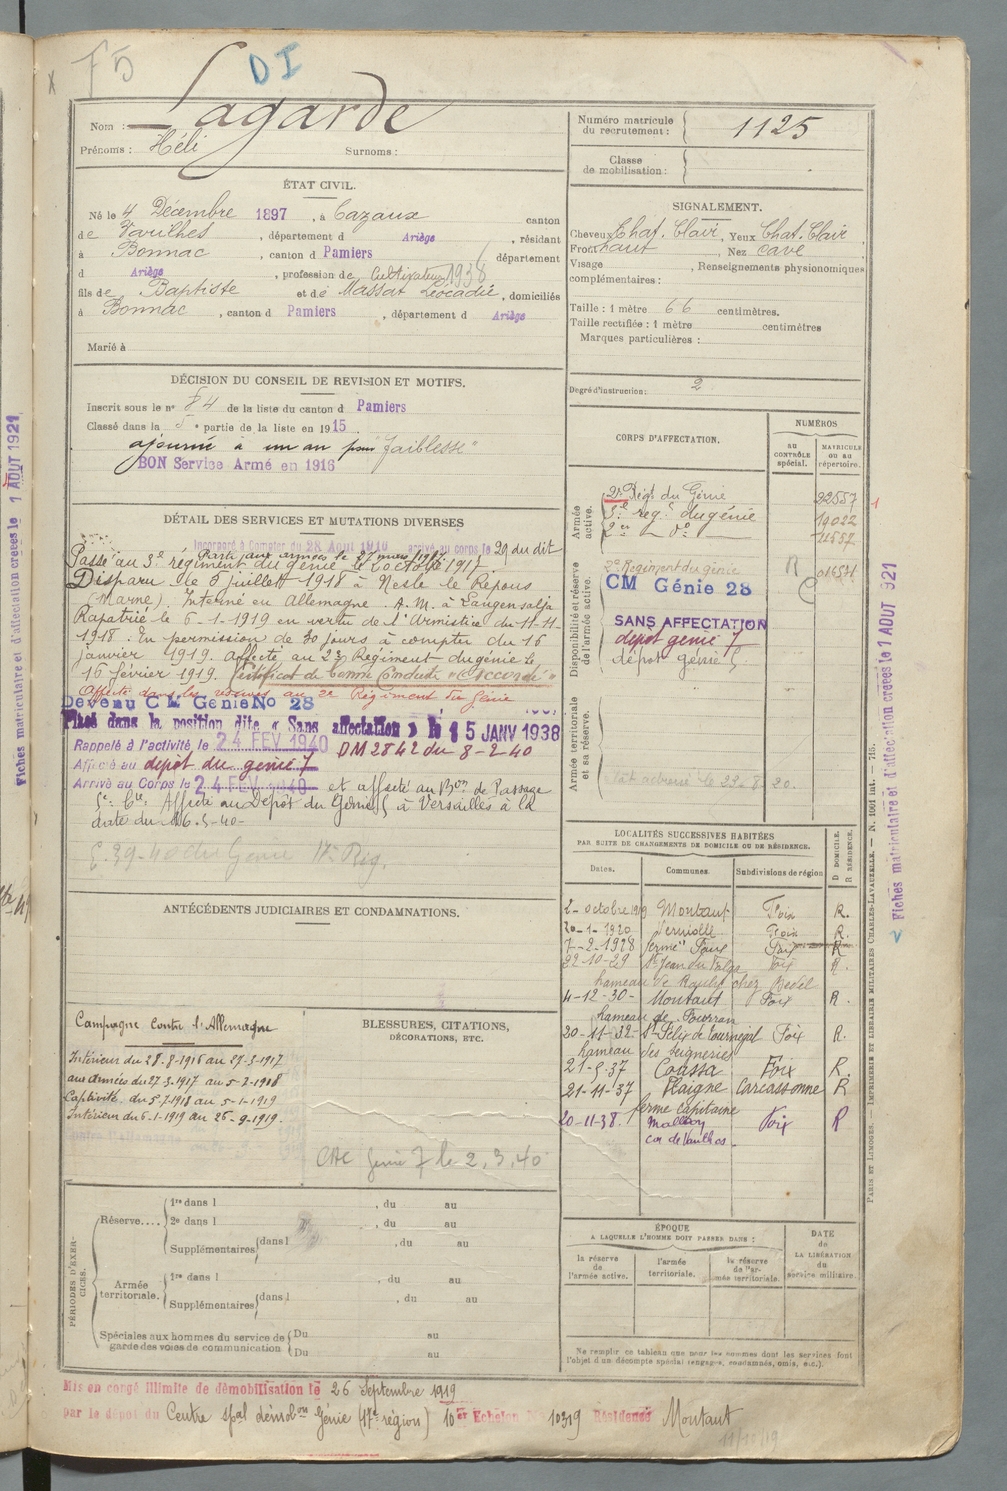 F5
DI
Nom : Lagarde
Prénoms : Héli Surnoms :
Numéro matricule du recrutement : 1125
Classe de mobilisation :
ÉTAT CIVIL.
Né le 4 Décembre 1897, à Cazaux canton
de Varilhes, département d Ariège, résidant
à Bonnac, canton d Pamiers département
d Ariège, profession de Cultivateur 1938
fils de Baptiste et de Massat Léocadie, domiciliés
à Bonnac, canton d Pamiers, département d Ariège
Marié à
SIGNALEMENT.
Cheveux Chat. Clair, Yeux Chat. Clair,
Front haut, Nez cave
Visage , Renseignements physionomiques
complémentaires :
Taille : 1 mètre 66 centimètres.
Taille rectifiée : 1 mètre centimètres
Marques particulières :
Degré d'instruction : 2
DÉCISION DU CONSEIL DE REVISION ET MOTIFS.
Inscrit sous le n° 84 de la liste du canton d Pamiers
Classé dans la 5e partie de la liste en 1915.
ajourné à un an pour "faiblesse"
BON Service Armé en 1916
DÉTAIL DES SERVICES ET MUTATIONS DIVERSES
Incorporé à Compter du 28 Août 1916 arrivé au corps le 29 du dit
Parti aux armées le 27 mars 1917
Passé au 3e régiment du génie le 2 octobre 1917.
Disparu le 5 juillet 1918 à Nesle le Repous
(Marne). Interné en Allemagne. A.M. à Langensalja
Rapatrié le 6-1-1919 en vertu de l'Armistice du 11-11-
1918. En permission de 30 jours à compter du 16
janvier 1919. Affecté au 2e Régiment du génie le
16 février 1919. Certificat de bonne Conduite "Accordé"
Affecté dans les réserves au 2e Régiment du Génie
Devenu CM Génie No 28
Placé dans la position dite « Sans affectation » le 15 JANV 1938
Rappelé à l'activité le 24 FEV 1940 DM 2842 du 8-2-40
Affecté au dépôt du génie 7
Arrivé au Corps le 24 FEV 1940 et affecté au Bon de Passage
5e Cie. Affecté au Dépôt du Génie 5 à Versailles à la
date du 16.5-40-
ANTÉCÉDENTS JUDICIAIRES ET CONDAMNATIONS.
Campagne contre l'Allemagne
Intérieur du 28-8-1916 au 27-3-1917
aux armées du 27-3-1917 au 5-7-1918
Captivité du 5-7-1918 au 5-1-1919
Intérieur du 6-1-1919 au 26-9-1919.
BLESSURES, CITATIONS,
DÉCORATIONS, ETC.
CAC Génie 7 le 2.3.40
CORPS D'AFFECTATION.
NUMÉROS
AU CONTRÔLE spécial.
MATRICULE OU AU répertoire.
Armée active.
2e Régt du Génie 22557
3e Régt du génie 19022
2e — d° — 11557
Disponibilité et réserve de l'armée active.
2e Régiment du génie R 01634
CM Génie 28
SANS AFFECTATION
dépôt génie 7
dépôt génie 5
Armée territoriale et sa réserve.
LOCALITÉS SUCCESSIVES HABITÉES
PAR SUITE DE CHANGEMENTS DE DOMICILE OU DE RÉSIDENCE.
Dates. Communes. Subdivisions de région D DOMICILE. R RÉSIDENCE.
2- octobre 1919 Montaut Foix R.
20-1-1920 Verniolle Foix R.
7-2-1928 Foix R
22-10-29 St Jean du Falga Foix R.
hameau de
4-12-30- Montaut Foix R.
hameau de
20-11-32- St Félix de Tournegat Foix R.
hameau des Seigneries
21-5-37 Coussa Foix R.
21-11-37 Plaigne Carcassonne R
ferme Capitaine
20-11-38. Malléon Foix R
con de Varilhes -
PÉRIODES D'EXERCICES.
Réserve.... 1re dans l , du au
2e dans l , du au
Supplémentaires dans l , du au
Armée territoriale. 1re dans l , du au
Supplémentaires dans l , du au
Spéciales aux hommes du service de garde des voies de communication Du au
Du au
ÉPOQUE
A LAQUELLE L'HOMME DOIT PASSER DANS :
la réserve de l'armée active.
l'armée territoriale.
la réserve de l'armée territoriale.
DATE de LA LIBÉRATION du service militaire.
Ne remplir ce tableau que pour les hommes dont les services font
l'objet d'un décompte spécial (engagés, condamnés, omis, etc.).
Mis en congé illimité de démobilisation le 26 Septembre 1919
par le dépôt du Centre spal démobon Génie (17e région) 10er Echelon No 10319 Résidence Montaut
Fiches matriculaire et d'affectation créées le 1 AOUT 1921
Fiches matriculaire et d'affectation créées le 1 AOUT 1921
PARIS ET LIMOGES. — IMPRIMERIE ET LIBRAIRIE MILITAIRES CHARLES-LAVAUZELLE. — N. 1001 int. — 715.